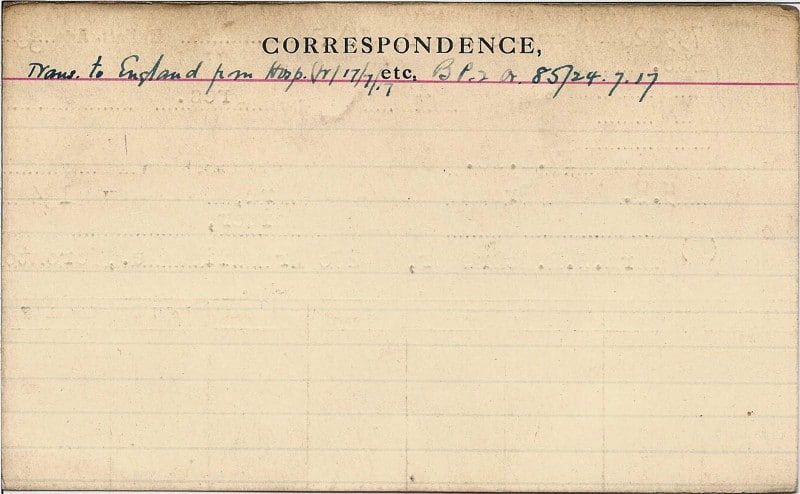 CORRESPONDENCE,
Trans. to England from Hosp. 17/7/17 etc. 85/24.7.17